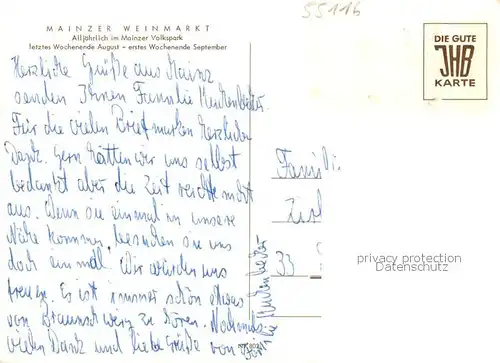 55116
MAINZER WEINMARKT
Alljährlich im Mainzer Volkspark
letztes Wochenende August – erstes Wochenende September
DIE GUTE
JHB
KARTE
Herzliche Grüße aus Mainz
senden Ihnen Familie
Für die vielen Briefmarken herzlichen
Dank. Gern hätten wir uns selbst
bedankt aber die Zeit reichte nicht
aus. Wenn Sie einmal in unsere
Nähe kommen, besuchen Sie uns
doch einmal. Wir würden uns
freuen. Es ist immer schön etwas
von Braunschweig zu hören. Nochmals
vielen Dank und liebe Grüße von
Famili
33
privacy protection
Datenschutz